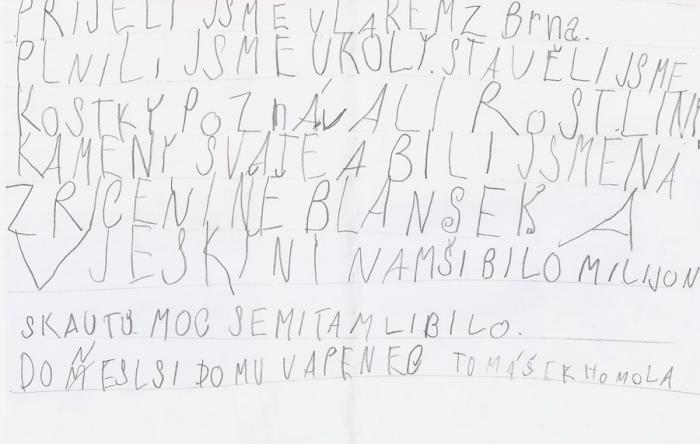 PRIJELI JSME VLAKEM Z Brna.
PLNILI JSME ÚKOLY. STAVĚLI JSME
KOSTKY POZnÁvALI ROSTLINI
KAMENY SVAJE A BILI JSME NA
ZRICENINE BLANSEK A
V JESKINI NAMŠI BILO MILIJON
SKAUTU MOC SE MI TAM LIBILO.
DOŇESLSI DOMU VAPENEC TOMÁŠEK HOMOLA